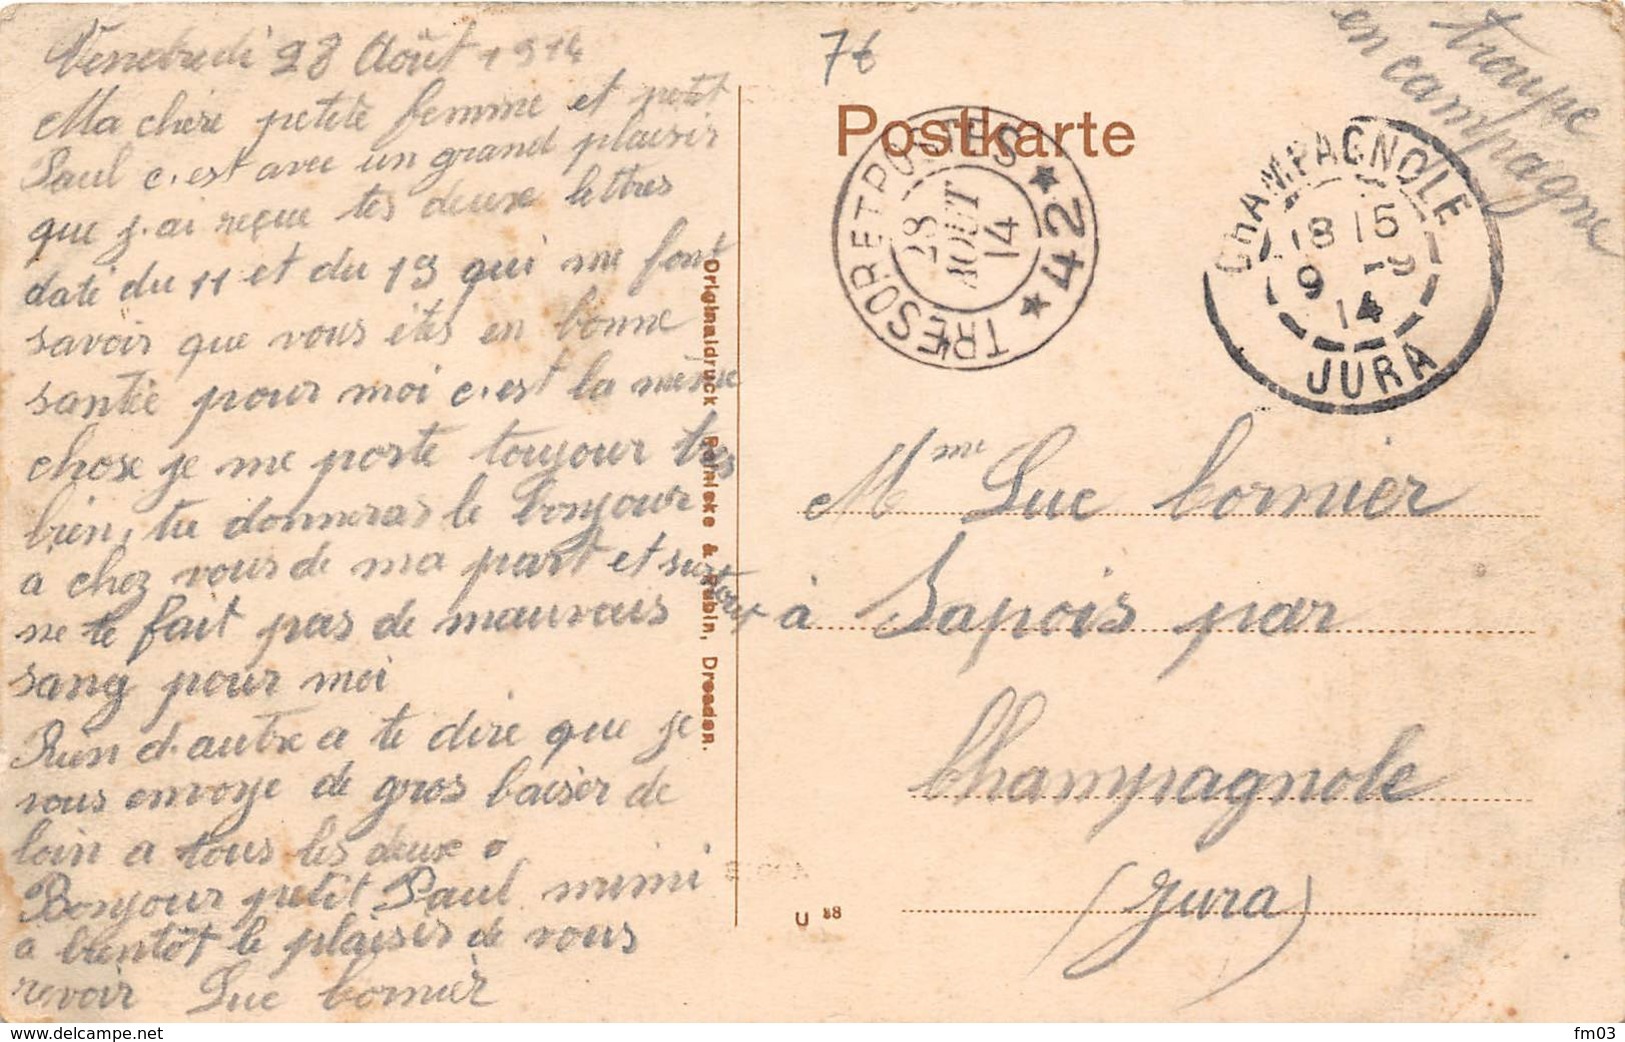 Vendredi 28 Août 1914
Ma chère petite femme et petit
Paul c.est avec un grand plaisir
que j.ai reçue tes deuxe lettres
daté du 11 et du 13 qui me font
savoir que vous êtes en bonne
santée pour moi c.est la même
chose je me porte toujour tres
bien, tu donneras le bonjour
a chez vous de ma part et surtout
ne te fait pas de mauvais
sang pour moi
Rien d.autre a te dire que je
vous envoye de gros baiser de
loin a tous les deuxe
Bonjour petit Paul mimi
a bientôt le plaisir de vous
revoir Luc Cornier
76
Postkarte
troupe
en campagne
TRESOR ET POSTES ★ 42 ★
28
AOUT
14
CHAMPAGNOLE
18 15
9 - 9
14
JURA
Originaldruck Reinicke & Rubin, Dresden.
Mme Luc Cornier
à Sapois par
Champagnole
(Jura)
U 88
delcampe.net
fm03